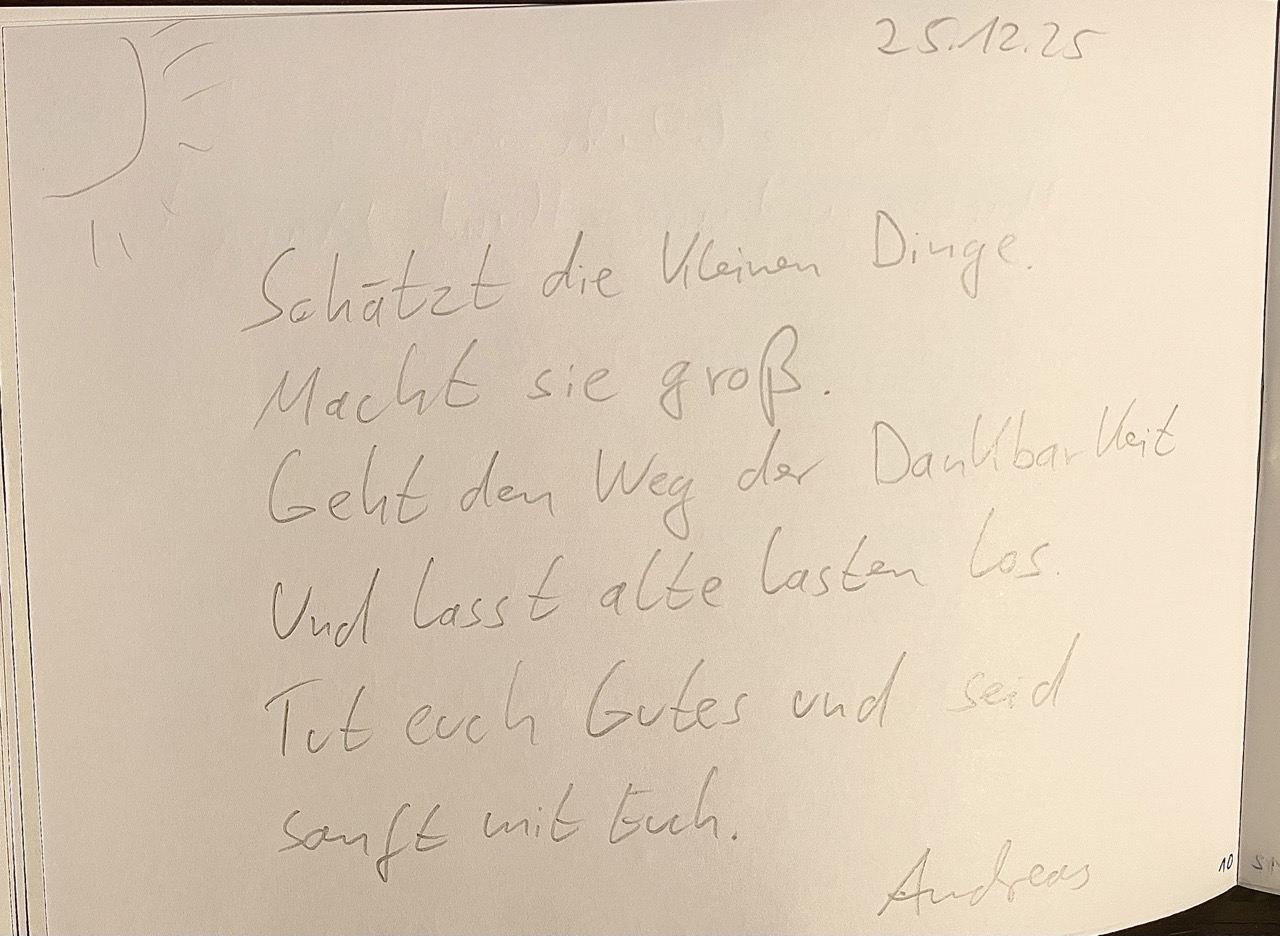 25.12.25
Schätzt die kleinen Dinge.
Macht sie groß.
Geht den Weg der Dankbarkeit
Und lasst alte Lasten los.
Tut euch Gutes und seid
sanft mit Euch.
Andreas
10